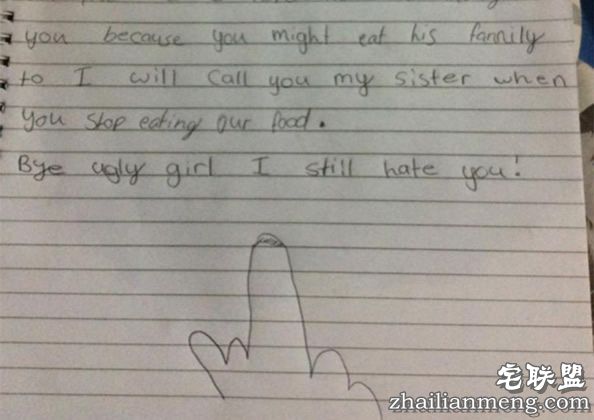 you because you might eat his fannily
to I will call you my sister when
you stop eating our food.
Bye ugly girl I still hate you!
宅联盟
zhailianmeng.com